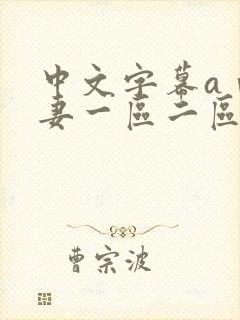 中文字幕a
妻一區二區
曹宗波